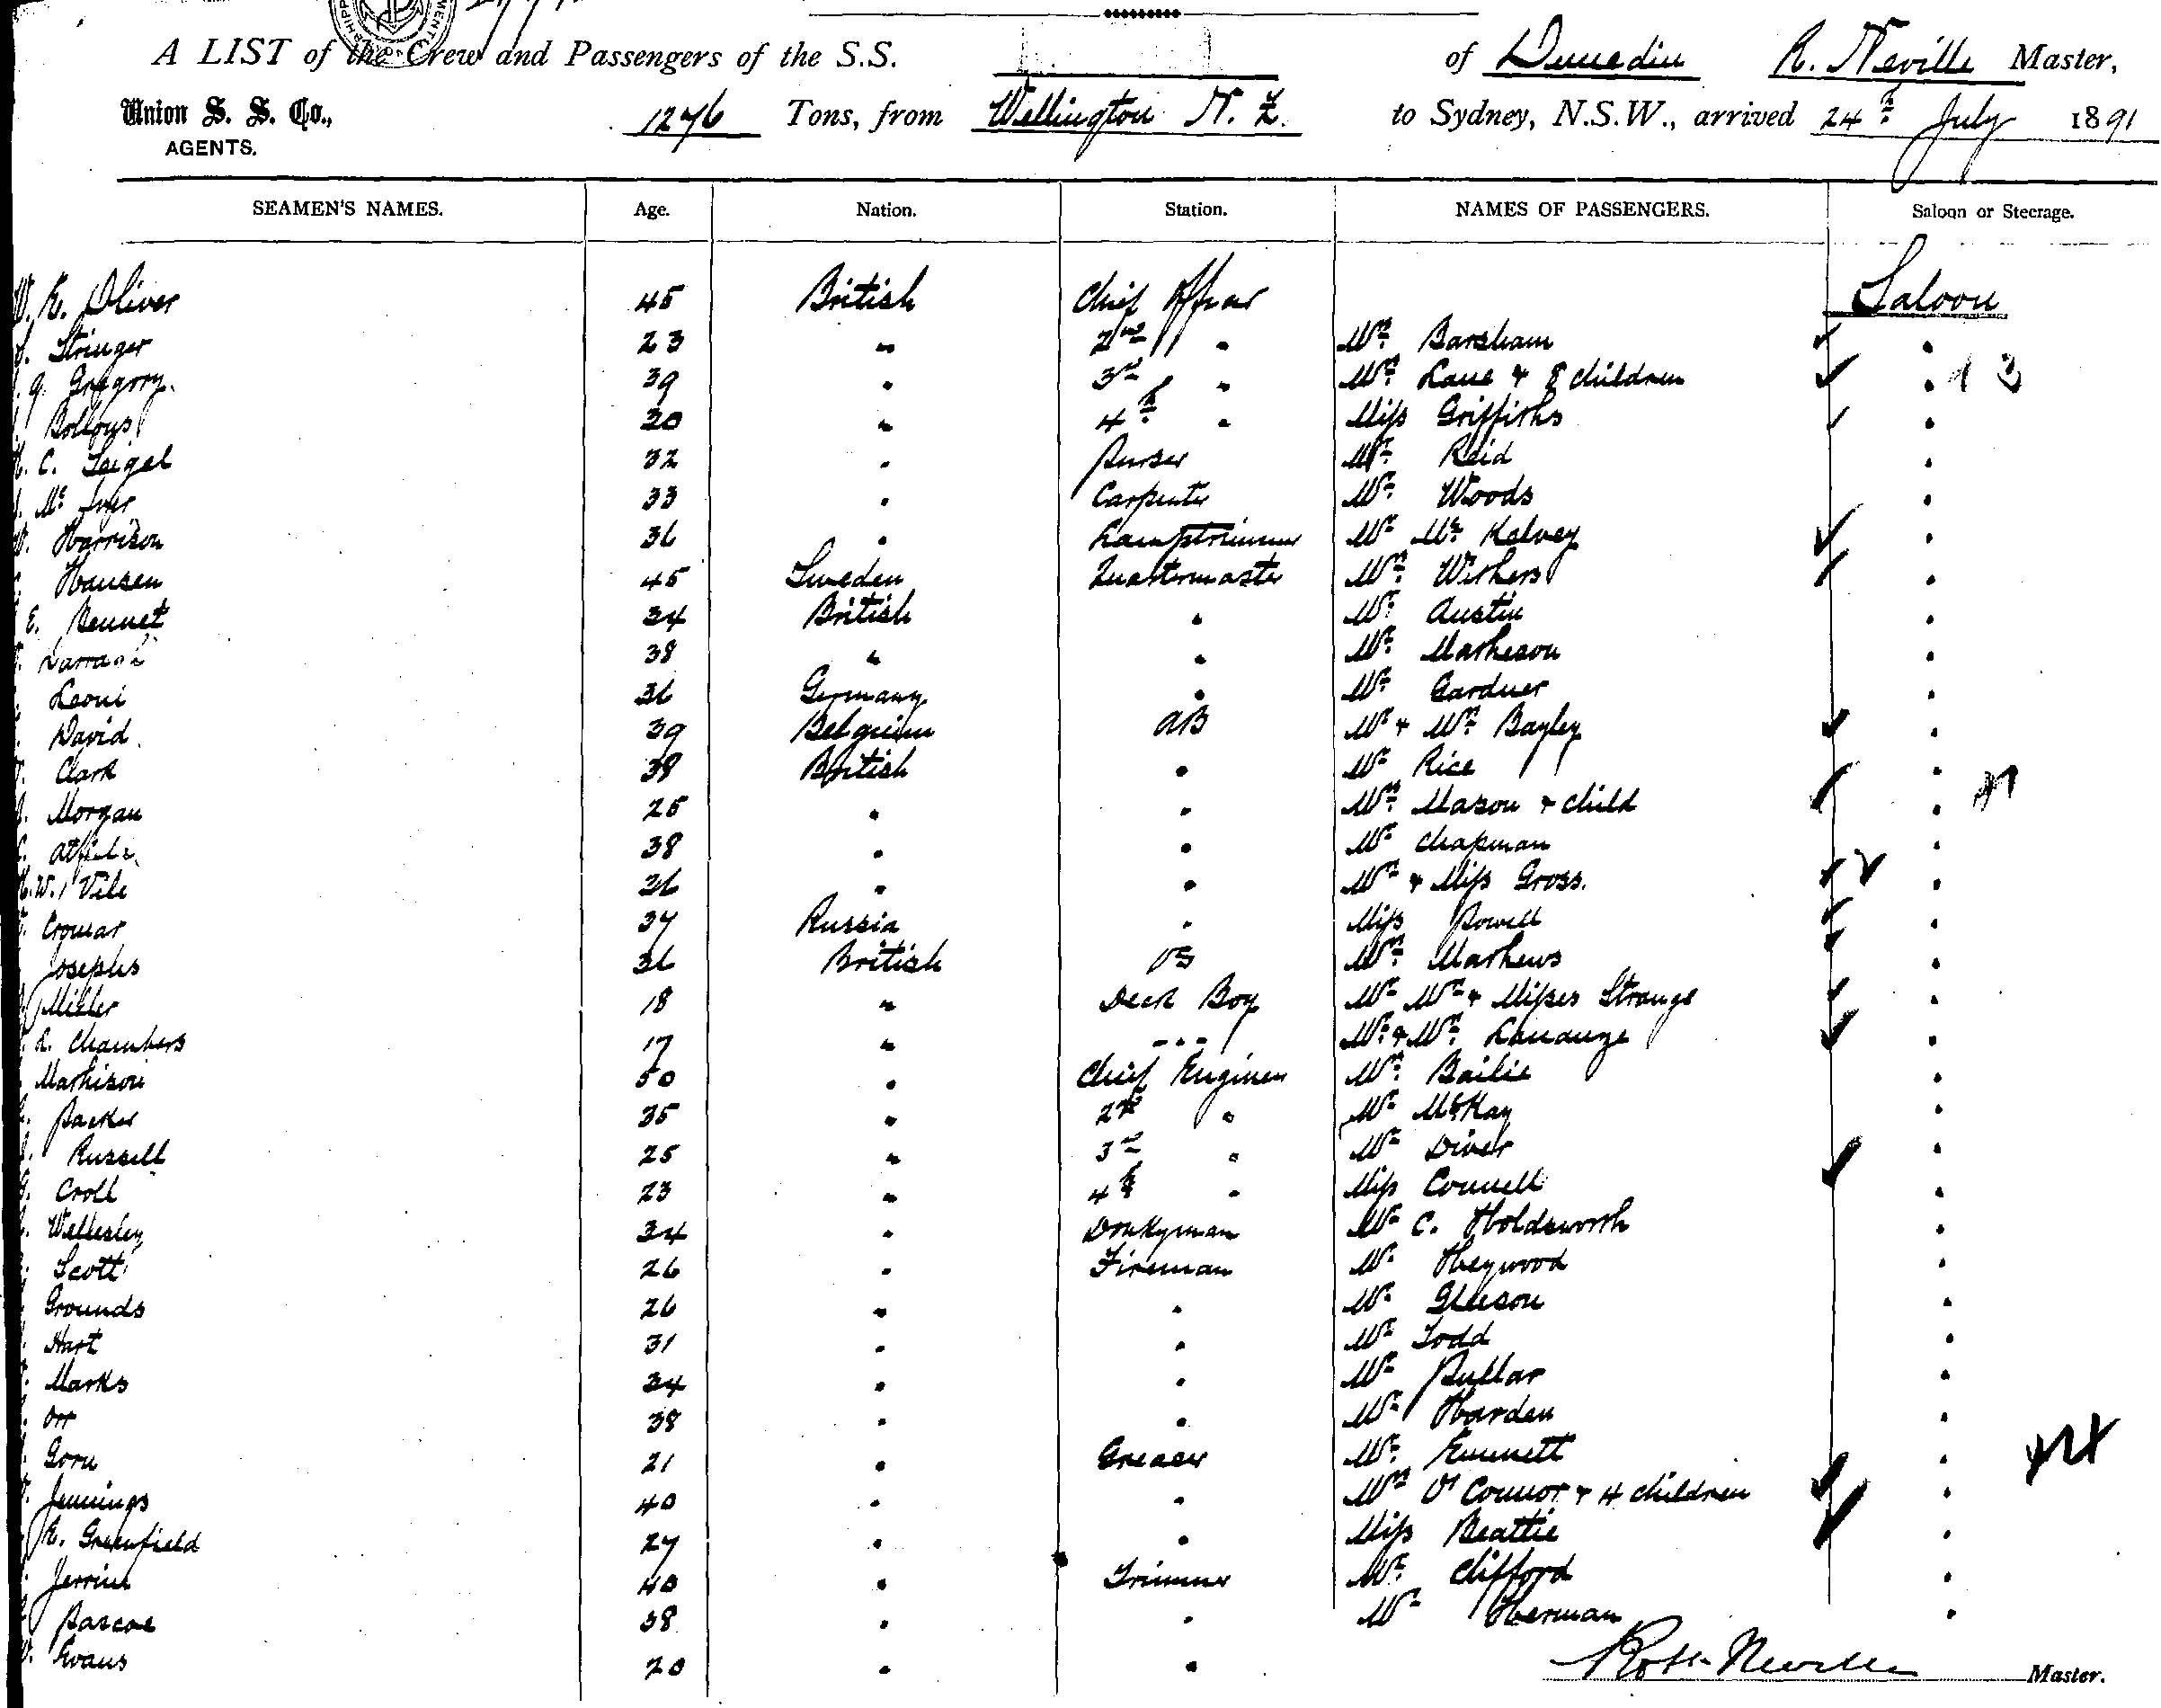 A LIST of the Crew and Passengers of the S.S. of Dunedin R. Neville Master,
Union S. S. Co., 1276 Tons, from Wellington N. Z. to Sydney, N.S.W., arrived 24th July 1891
AGENTS.
SEAMEN'S NAMES. Age. Nation. Station. NAMES OF PASSENGERS. Saloon or Steerage.
W. E. Oliver 45 British Chief Officer Saloon
Stringer 23 " 2nd " Mrs Barsham "
G. Gregory 39 " 3rd " Mrs Lane & 8 children " 13
Bollous 30 " 4th " Miss Griffiths "
C. Seigel 32 " Purser Mr Reid "
McIver 33 " Carpenter Mr Woods "
Harrison 36 " Lamptrimmer Mr McKelvey "
Hansen 45 Sweden Quartermaster Mrs Withers "
E. Bennet 34 British " Mr Austin "
38 " " Mr Matheson "
Leoni 36 Germany " Mr Gardner "
David 39 Belgium AB Mr & Mrs Bayley "
Clark 38 British " Mr Rice "
Morgan 25 " " Mrs Mason & child "
38 " " Mr Chapman "
W. Vile 26 " " Mrs & Miss Gross. "
Cromar 37 Russia " Miss Powell "
Josephs 36 British OS Mrs Mathews "
Miller 18 " Deck Boy Mr Mrs & Misses Strange "
R. Chambers 17 " " " " Mr & Mrs "
Mathison 50 " Chief Engineer Mr Bailie "
Parker 35 " 2nd " Mr McKay "
Russell 25 " 3rd " Mr Diver "
Croll 23 " 4th " Miss Connell "
Wellesley 34 " Donkyman Mr C. Holdsworth "
Scott 26 " Fireman Mr Heywood "
Grounds 26 " " Mr Gleeson "
Hart 31 " " Mr Todd "
Marks 34 " " Mr Pullar "
Orr 38 " " Mr Harden "
Gorn 21 " Greaser Mr Emmett "
Jennings 40 " " Mrs O'Connor & 4 children "
E. Greenfield 27 " " Miss Beattie "
40 " Trimmer Mr Clifford "
Pascoe 38 " " Mr Herman "
Evans 20 " " Robt Neville Master.